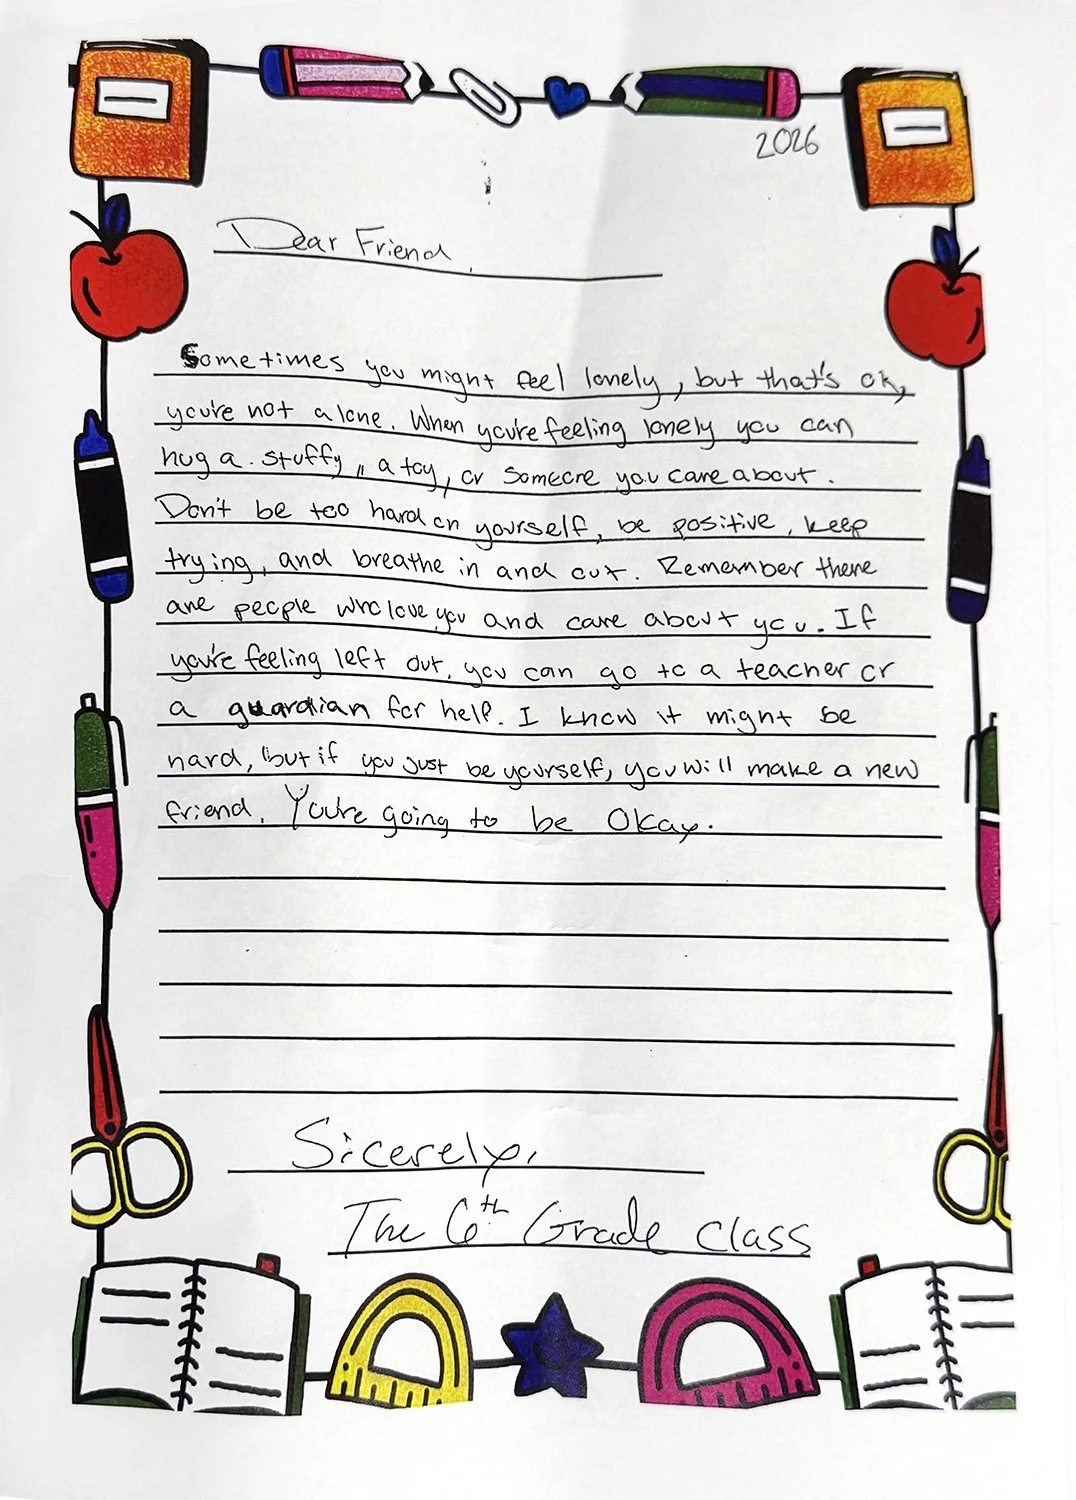 2026
Dear Friend,
Sometimes you might feel lonely, but that's ok,
you're not alone. When you're feeling lonely you can
hug a stuffy, a toy, or someone you care about.
Don't be too hard on yourself, be positive, keep
trying, and breathe in and out. Remember there
are people who love you and care about you. If
you're feeling left out, you can go to a teacher or
a guardian for help. I know it might be
hard, but if you just be yourself, you will make a new
friend. You're going to be Okay.
Sicerely,
The 6th Grade class